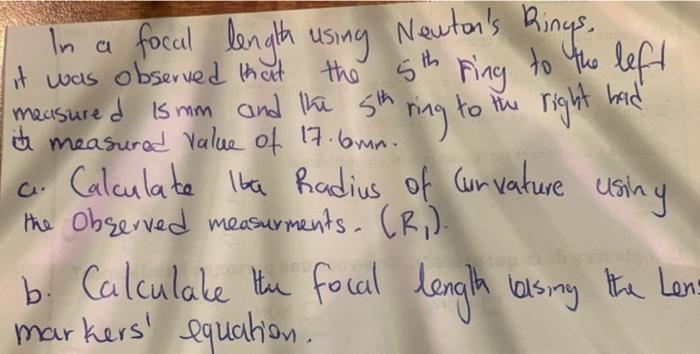 In a focal length using Newton's Rings.
it was observed that the 5th Fing to the left
measured 15mm and the 5th ring to the right had
a measured value of 17.6mm.
a. Calculate the Radius of Curvature using
the Observed measurments. (R1).
b. Calculate the focal length using the Lens
markers' equation.